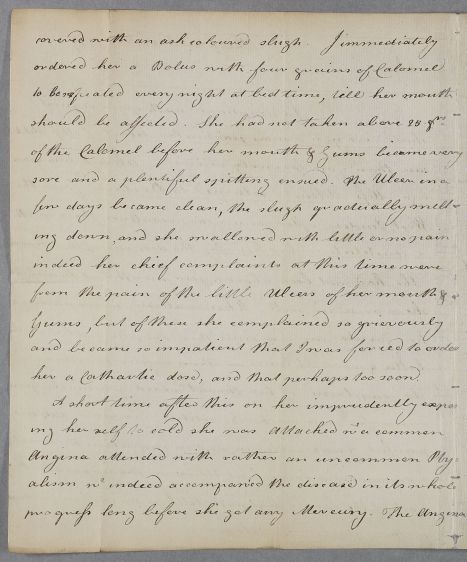 covered with an ash coloured slugh. I immediately
ordered her a Bolus with four grains of Calomel
to be repeated every night at bed time, till her mouth
should be affected. She had not taken above 28 grs
of the Calomel before her mouth & Gums became very
sore and a plentiful spitting ensued. The Ulcer in a
few days became clean, the slugh gradually melt-
ing down, and she swallowed with little or no pain
indeed her chief complaints at this time were
from the pain of the little Ulcers of her mouth &
Gums, but of these she complained so grieverously
and became so impatient that I was forced to order
her a Cathartic dose, and that perhaps too soon.
A short time after this on her imprudently expos
ing her self to cold she was attacked wt a common
Angina attended with rather an uncommon Pty-
alism wc indeed accompanied the disease in its whole
progress long before she got any Mercury. The Angina